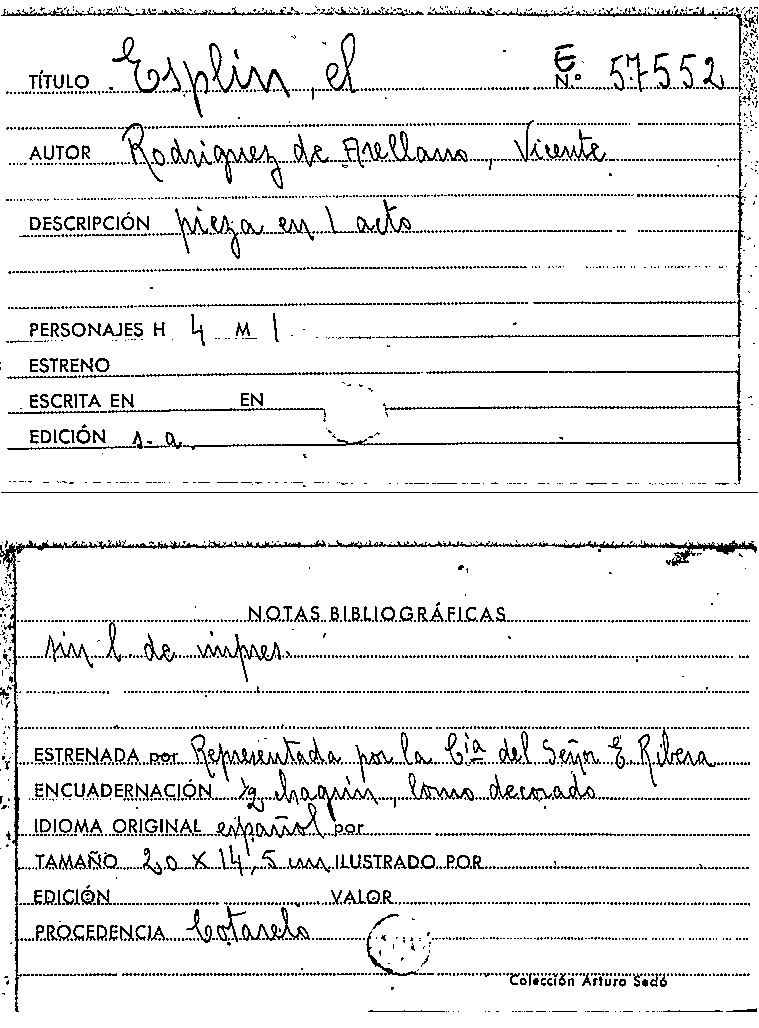 TÍTULO Esplin, el E N.º 57552
AUTOR Rodriguez de Arellano, Vicente
DESCRIPCIÓN pieza en 1 acto
PERSONAJES H 4 M 1
ESTRENO
ESCRITA EN EN
EDICIÓN s. a.
NOTAS BIBLIOGRÁFICAS
sin l. de impres.
ESTRENADA por Representada por la Cía del Señor E. Ribera
ENCUADERNACIÓN 1/2 chagrin, lomo decorado
IDIOMA ORIGINAL español por
TAMAÑO 20 X 14,5 cm ILUSTRADO POR
EDICIÓN VALOR
PROCEDENCIA Cotarelo
Colección Arturo Sedó